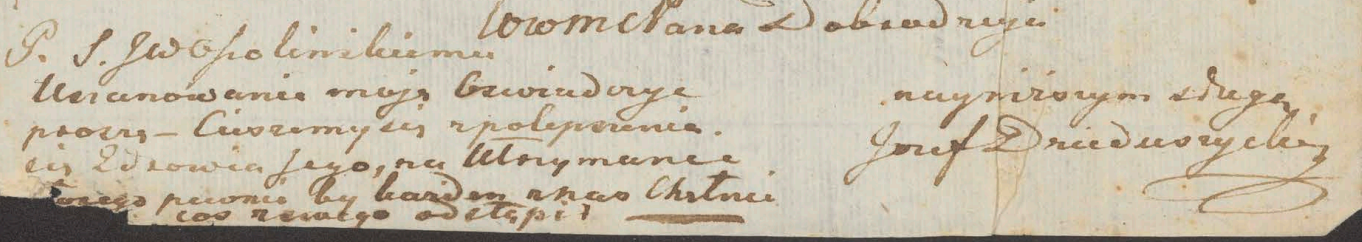 WWM Pana Dobrodzieja
P. S. JW Opolinskiemu
Uszanowanie moje Oswiadczyc
proszę – Cieszemy się z polepszenia
się Zdrowia Jego, na Utrzymanie
ktorego pewnie by każden z nas Chętnie
cos swego odstąpił
naynizszym sługą
Jozef Dzieduszycki